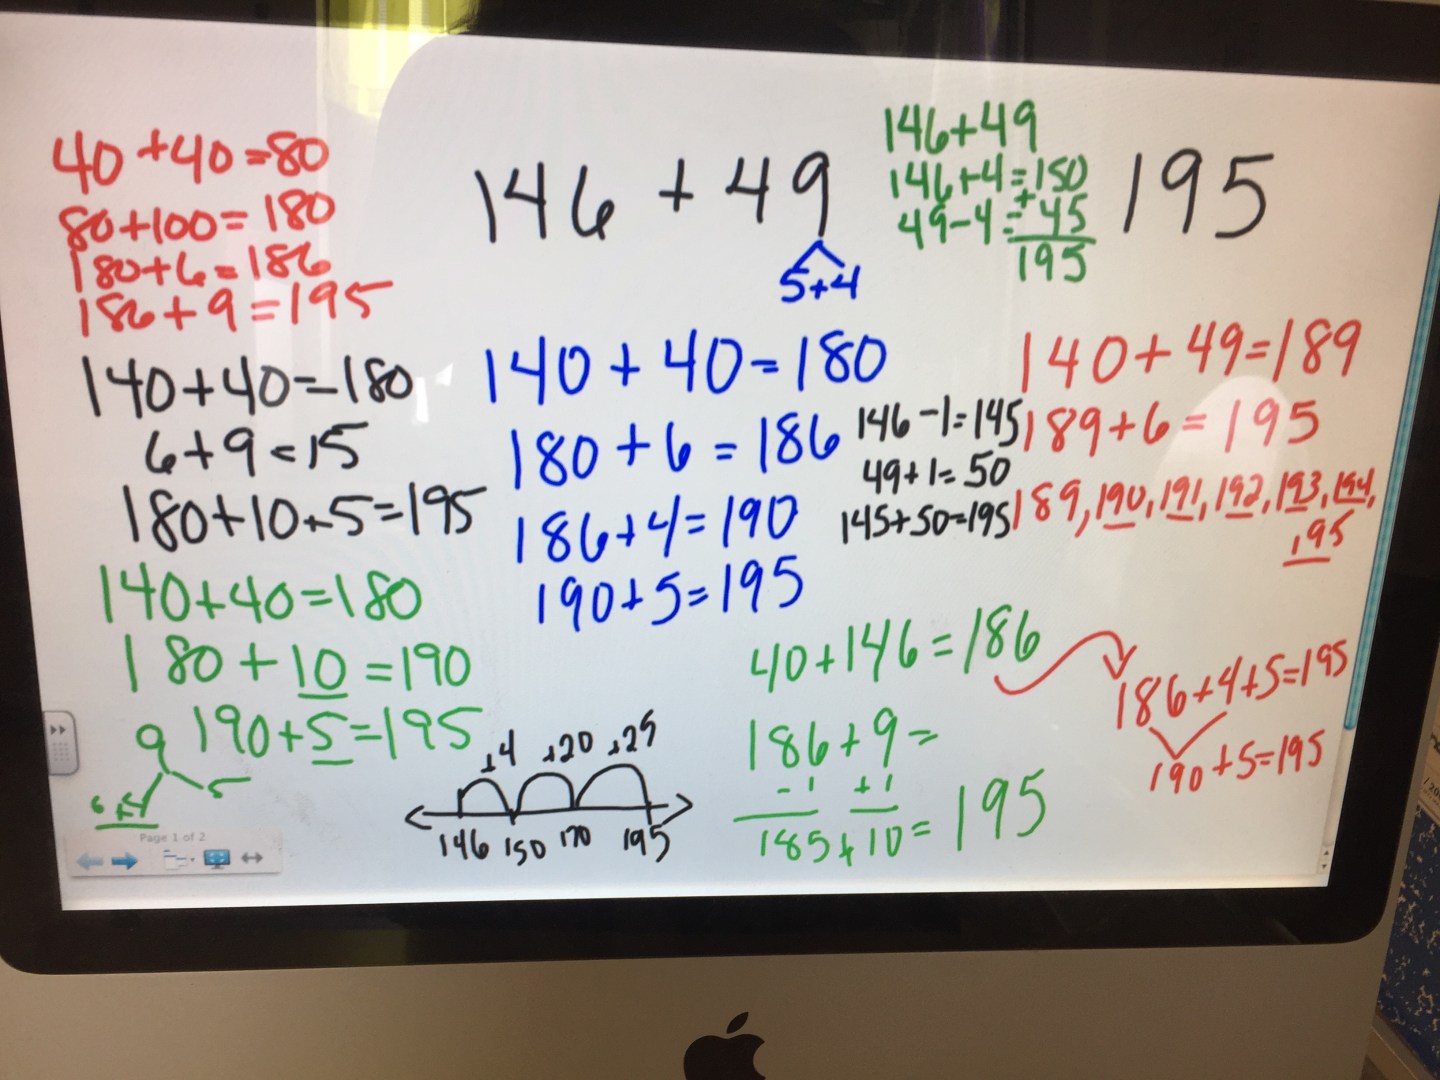 40 + 40 = 80
80 + 100 = 180
180 + 6 = 186
186 + 9 = 195
146 + 49
5+4
146+49
146+4=150
49-4= + 45
195
195
140+40=180
6+9=15
180+10+5=195
140 + 40 = 180
180 + 6 = 186
186 + 4 = 190
190 + 5 = 195
146-1=145
49+1=50
145+50=195
140 + 49 = 189
189 + 6 = 195
189, 190, 191, 192, 193, 194,
195
140+40=180
180 + 10 = 190
190+5=195
9
5
+4 +20 +25
146 150 170 195
40+146=186
186+9=
-1 +1
185+10= 195
186+4+5=195
190+5=195
Page 1 of 2